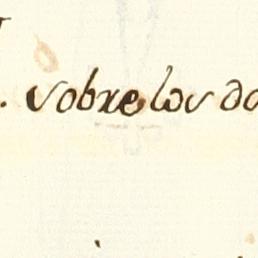 . sobre los do